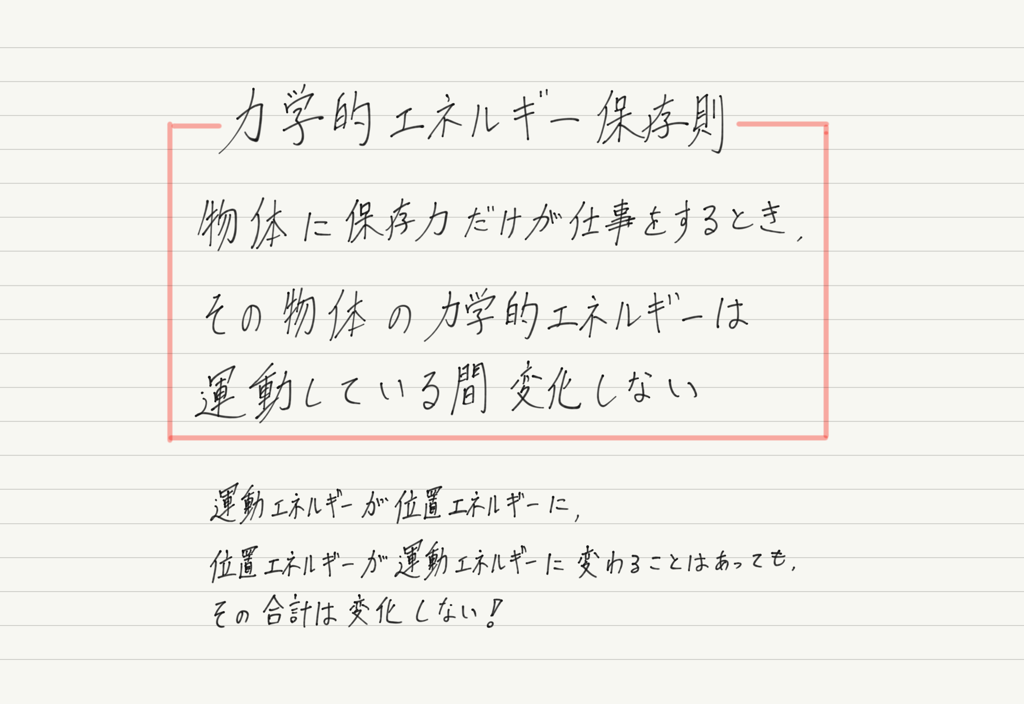 力学的エネルギー保存則
物体に保存力だけが仕事をするとき,
その物体の力学的エネルギーは
運動している間変化しない
運動エネルギーが位置エネルギーに,
位置エネルギーが運動エネルギーに変わることはあっても,
その合計は変化しない!